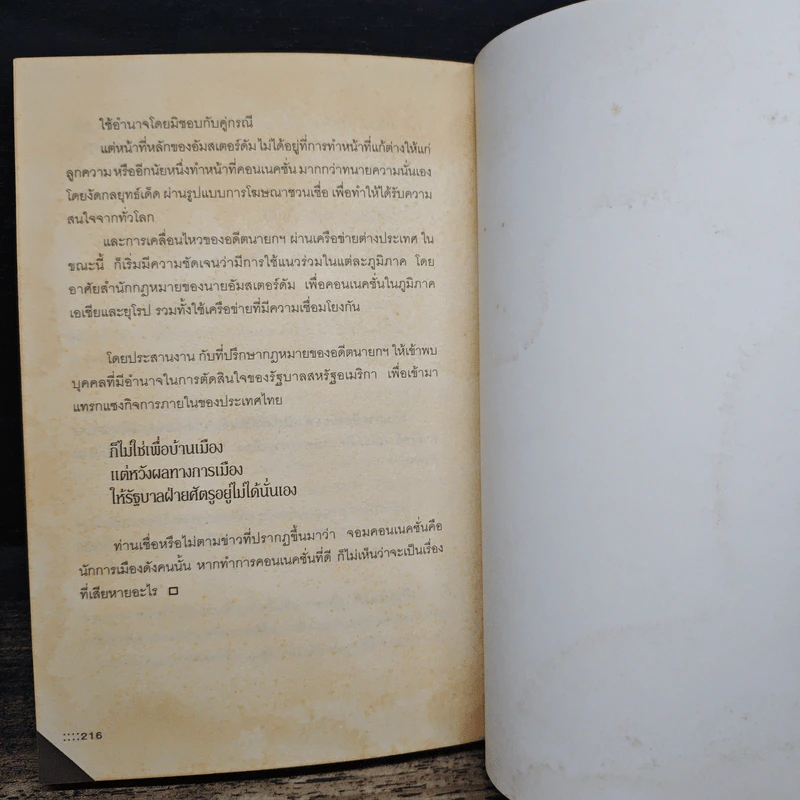 ใช้อำนาจโดยมิชอบกับคู่กรณี
แต่หน้าที่หลักของอัมสเตอร์ดัม ไม่ได้อยู่ที่การทำหน้าที่แก้ต่างให้แก่
ลูกความ หรืออีกนัยหนึ่งทำหน้าที่คอนเนคชั่น มากกว่าทนายความนั่นเอง
โดยงัดกลยุทธ์เด็ด ผ่านรูปแบบการโฆษณาชวนเชื่อ เพื่อทำให้ได้รับความ
สนใจจากทั่วโลก
และการเคลื่อนไหวของอดีตนายกฯ ผ่านเครือข่ายต่างประเทศ ใน
ขณะนี้ ก็เริ่มมีความชัดเจนว่ามีการใช้แนวร่วมในแต่ละภูมิภาค โดย
อาศัยสำนักกฎหมายของนายอัมสเตอร์ดัม เพื่อคอนเนคชั่นในภูมิภาค
เอเชียและยุโรป รวมทั้งใช้เครือข่ายที่มีความเชื่อมโยงกัน
โดยประสานงาน กับที่ปรึกษากฎหมายของอดีตนายกฯ ให้เข้าพบ
บุคคลที่มีอำนาจในการตัดสินใจของรัฐบาลสหรัฐอเมริกา เพื่อเข้ามา
แทรกแซงกิจการภายในของประเทศไทย
ก็ไม่ใช่เพื่อบ้านเมือง
แต่หวังผลทางการเมือง
ให้รัฐบาลฝ่ายศัตรูอยู่ไม่ได้นั่นเอง
ท่านเชื่อหรือไม่ตามข่าวที่ปรากฏขึ้นมาว่า จอมคอนเนคชั่นคือ
นักการเมืองดังคนนั้น หากทำการคอนเนคชั่นที่ดี ก็ไม่เห็นว่าจะเป็นเรื่อง
ที่เสียหายอะไร □
::::216